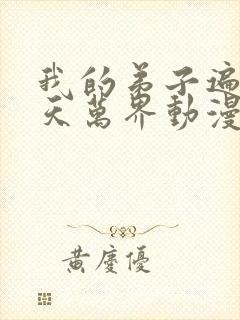 我的弟子遍
天萬界動漫
黃慶優